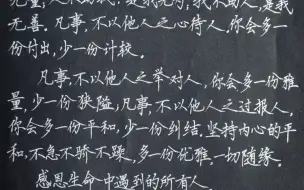 无善。凡事，不以他人之心待人，你会多一
份付出，少一份计较。
凡事，不以他人之举对人，你会多一份雅
量，少一份狭隘，不以他人之过报人，
你会多一份平和，少一份纠结，坚持内心的平
和，不急不骄不躁，多一份优雅，一切随缘。
感恩生命中遇到的所有人